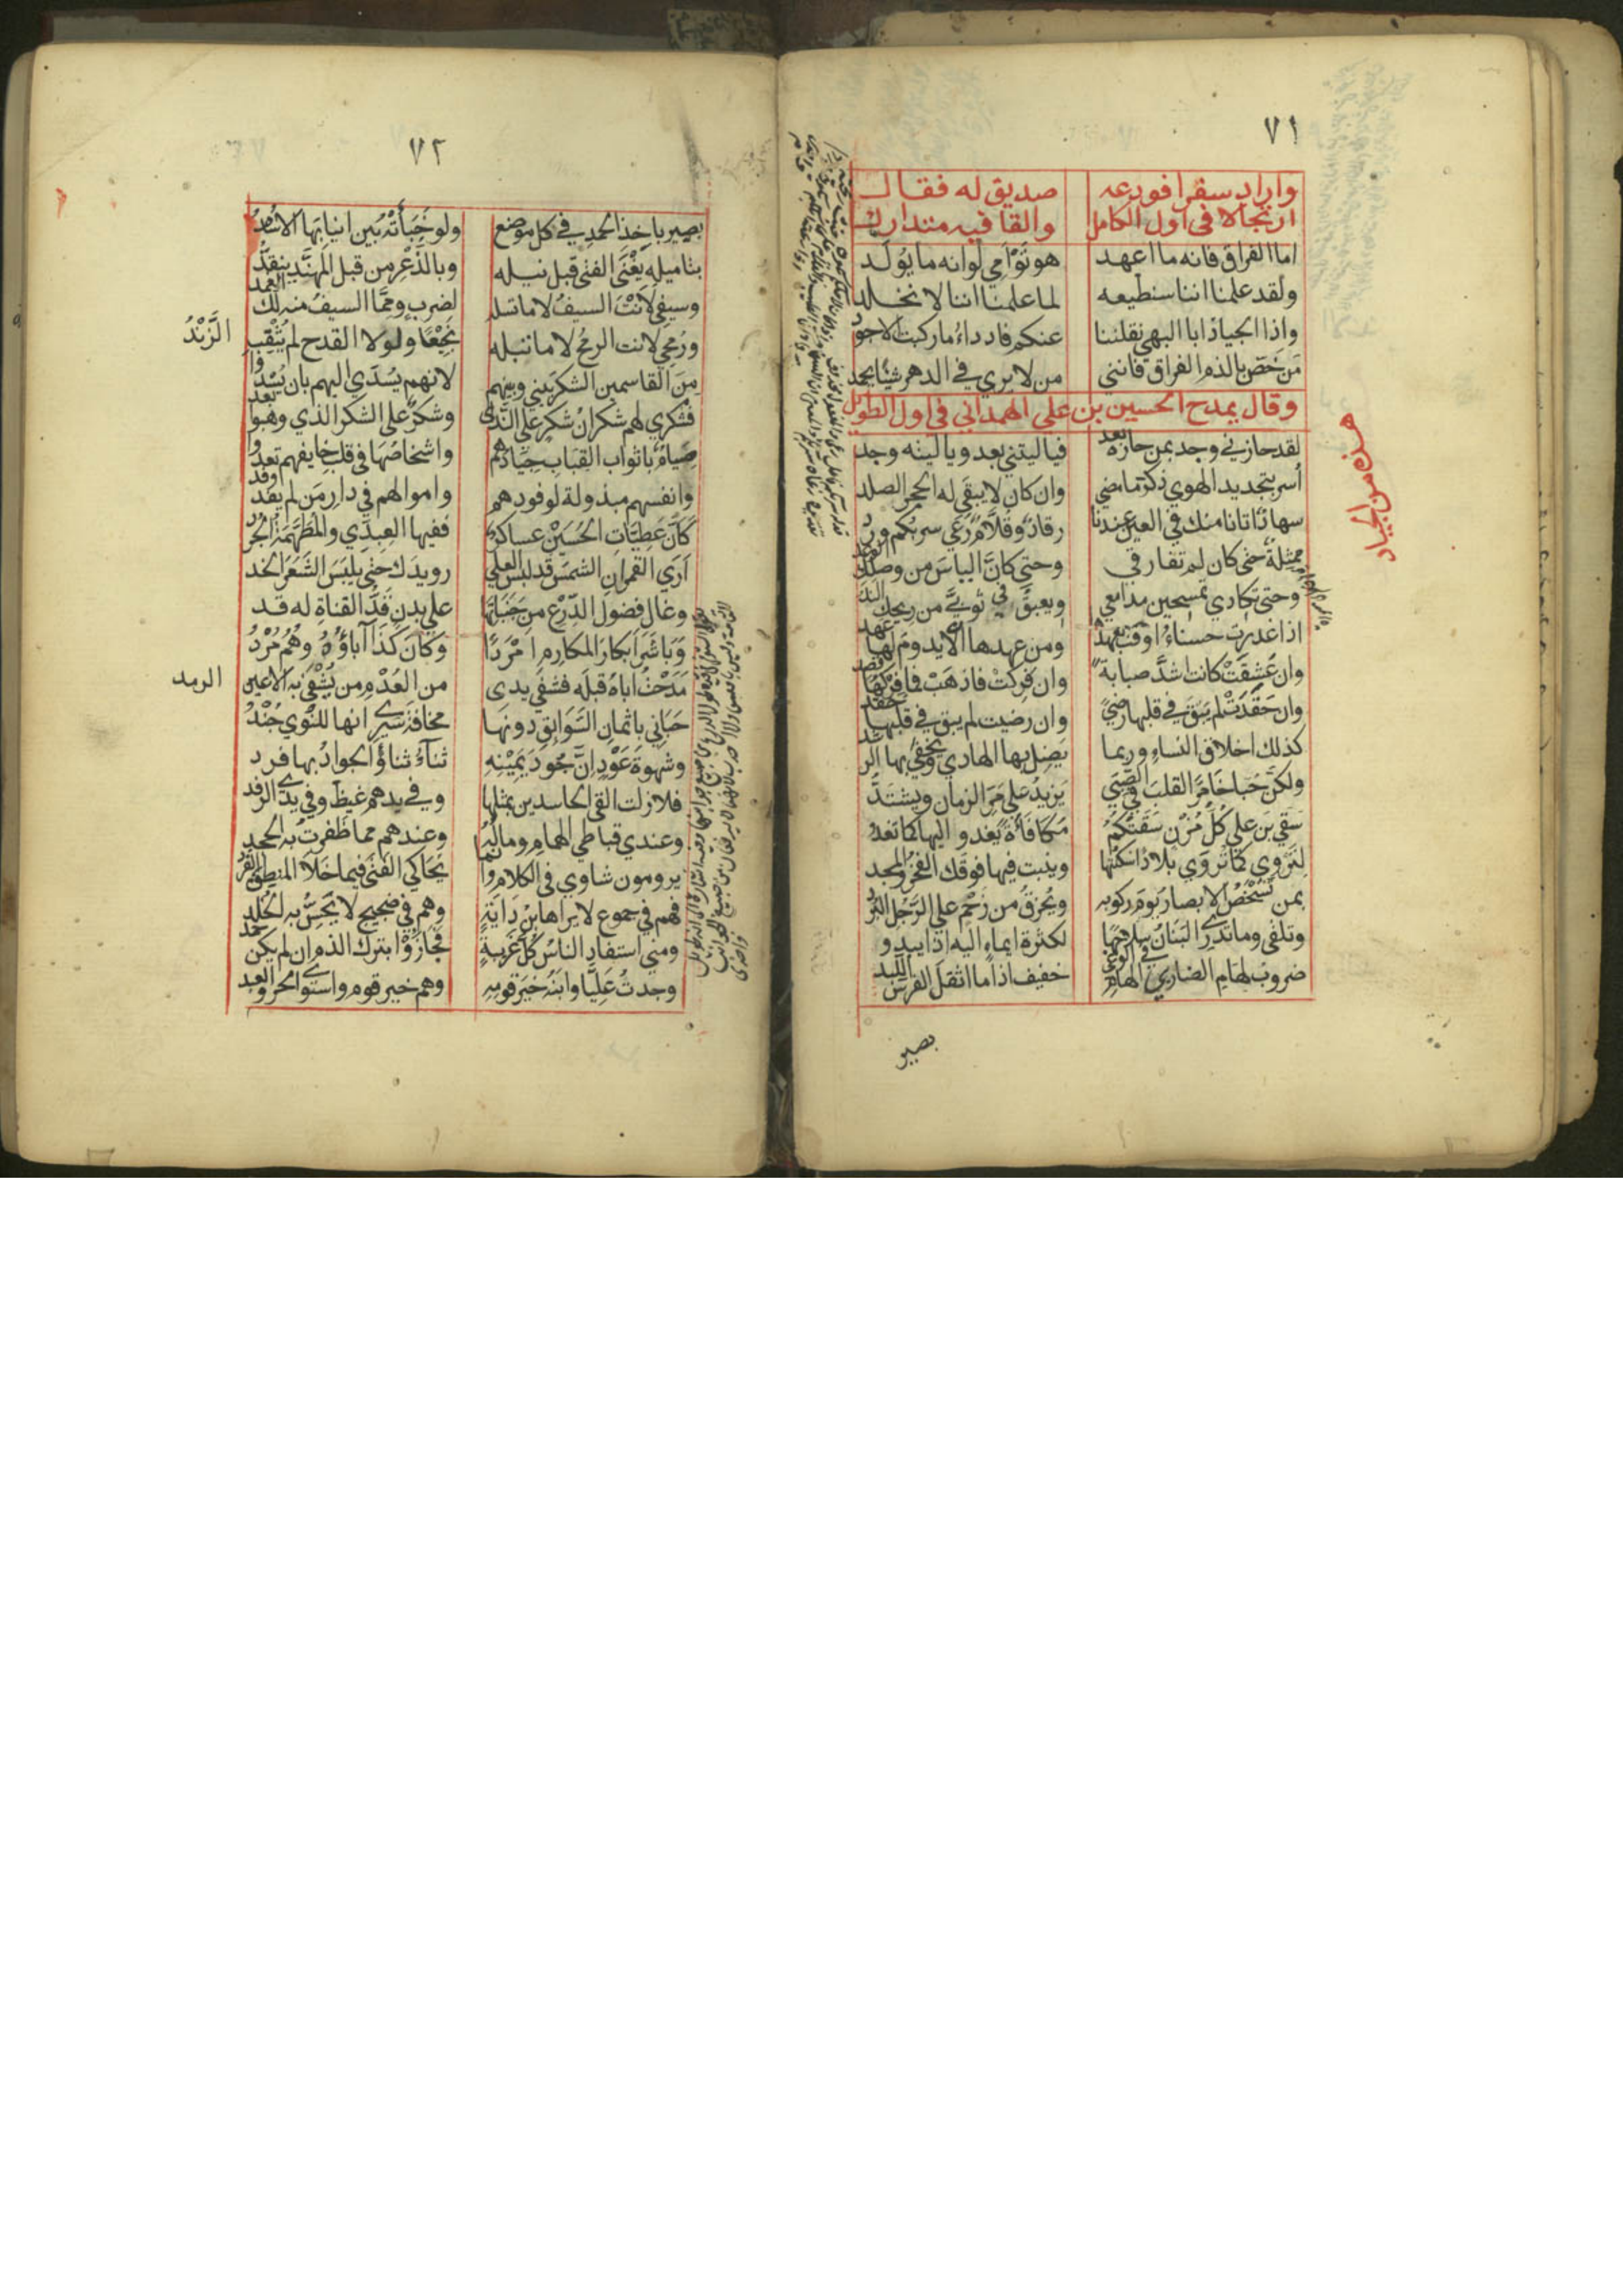 ٧١
واراد سفرا فودعه صديق له فقال
ارتجالا في اول الكامل والقافيه متدارك
اما الفراق فانه ما اعهد هو توأمي لوانه ما يولد
ولقد علمنا اننا سنطيعه لما علمنا اننا لا نخلد
واذا الجياد ابا البهي نقلننا عنكم فاردأ ما ركبت الاجود
من خص بالذم الفراق فانني من لا يري في الدهر شيئا يحمد
وقال يمدح الحسين بن علي الهمداني في اول الطويل
لقد حازني وجد بمن حازه بعد فياليتني بعد وياليته وجد
أسر بتجديد الهوي ذكر ما مضي وان كان لا يبقي له الحجر الصلد
سهاد اتانا منك في العين عندنا رقاد وقلام رعي سربكم ورد
ممثلة حتي كان لم تفارقي وحتي كان الياس من وصلك الوعد
وحتي تكادي تمسحين مدامعي ويعبق في ثوبي من ريحك الند
اذا غدرت حسناء اوفت بعهدها ومن عهدها الا يدوم لها عهد
وان عشقت كانت اشد صبابة وان فركت فاذهب فما فركها قصد
وان حقدت لم يبق في قلبها رضي وان رضيت لم يبق في قلبها حقد
كذلك اخلاق النساء وربما يضل بها الهادي ويخفي بها الرشد
ولكن حبا خامر القلب في الصبي يزيد علي مر الزمان ويشتد
سقي بن علي كل مزن سقتكم مكافأة يغدو اليها كما تغدو
لتروي كما تروي بلادا سكنتها وينبت فيها فوقك الفخر والمجد
بمن تشخص الابصار يوم ركوبه ويخرق من زحم علي الرجل البرد
وتلقي وما تدري البنان سلاحها لكثرة ايماء اليه اذا يبدو
ضروب لهام الضاربي الهام في الوغي خفيف اذا ما اثقل الفرس اللبد
بصير
هذه من الجياد
٧٢
بصير باخذ الحمد في كل موضع ولو خبأته بين انيابها الاسد
بتاميله يغني الفتي قبل نيله وبالذعر من قبل المهند ينقد
وسيفي لانت السيف لا ما تسله لضرب ومما السيف منه لك الغمد
ورمحي لانت الرمح لا ما تبله نجيعا ولولا القدح لم يثقب
الزند
من القاسمين الشكر بيني وبينهم لانهم يسدي اليهم بان يسدوا
فشكري لهم شكران شكر علي الندي وشكر علي الشكر الذي وهبوا بعد
صيام باثواب القباب جيادهم واشخاصها في قلب خايفهم تعدو
وانفسهم مبذولة لوفودهم واموالهم في دار من لم يفد وفد
كأن عطيات الحسين عساكر ففيها العبدي والمطهمة الجرد
اري القمر ابن الشمس قد لبس العلي رويدك حتي يلبس الشعر الخد
وغال فضول الدرع من جنباتها علي بدن قد القناة له قد
وباشر ابكار المكارم امردا وكان كذا اباؤه وهم مرد
مدحت اباه قبله فشفي يدي من العدم من يشفي به الاعين
الرمد
حباني باثمان السوابق دونها مخافة سيري انها للنوي جند
وشهوة عود ان جود يمينه ثناء ثناء والجواد بها فرد
فلا زلت القي الحاسدين بمثلها وفي يدهم غيظ وفي يدي الرفد
وعندي قباطي الهمام وماله وعندهم مما ظفرت به الجحد
يرومون شاوي في الكلام وانما يحاكي الفتي فيما خلا المنطق القرد
فهم في جموع لا يراها بن داية وهم في ضجيج لا يحس به الخلد
ومني استفاد الناس كل غريبة فجازوا بترك الذم ان لم يكن حمد
وجدت عليا وابنه خير قومه وهم خير قوم واستوي الحر والعبد